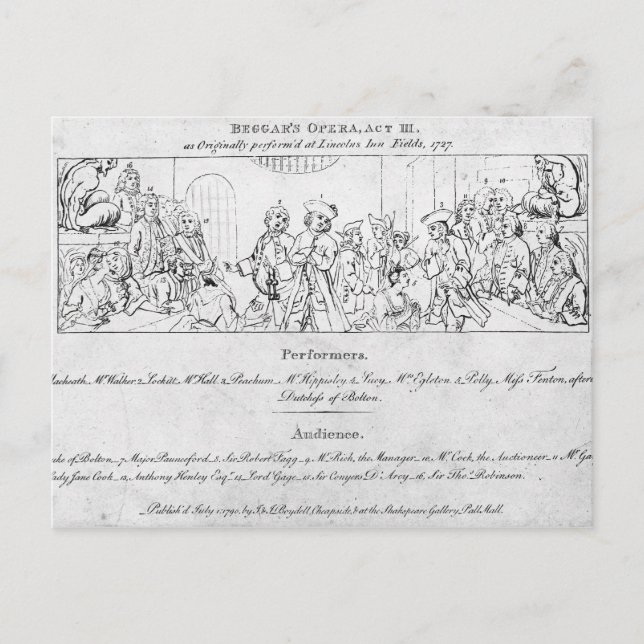 BEGGAR'S OPERA, ACT III.
as Originally perform'd at Lincolns Inn Fields, 1727.
16
14
15
2
3
11
9
10
5
Performers.
Macheath Mr Walker. 2 Lockitt Mr Hall. 3 Peachum Mr Hippisley. 4 Lucy Mrs Egleton. 5 Polly Miss Fenton, after
Dutchess of Bolton.
Audience.
ke of Bolton_7 Major Paunceford_8 Sir Robert Fagg_9 Mr Rich, the Manager_10 Mr Cock, the Auctioneer_11 Mr Ga
ady Jane Cook_13, Anthony Henley Esqr_14 Lord Gage_15 Sir Conyers D'Arcy_16, Sir Thos. Robinson.
Publish'd July 1: 1790, by J. & J. Boydell, Cheapside, & at the Shakspeare Gallery Pall Mall.